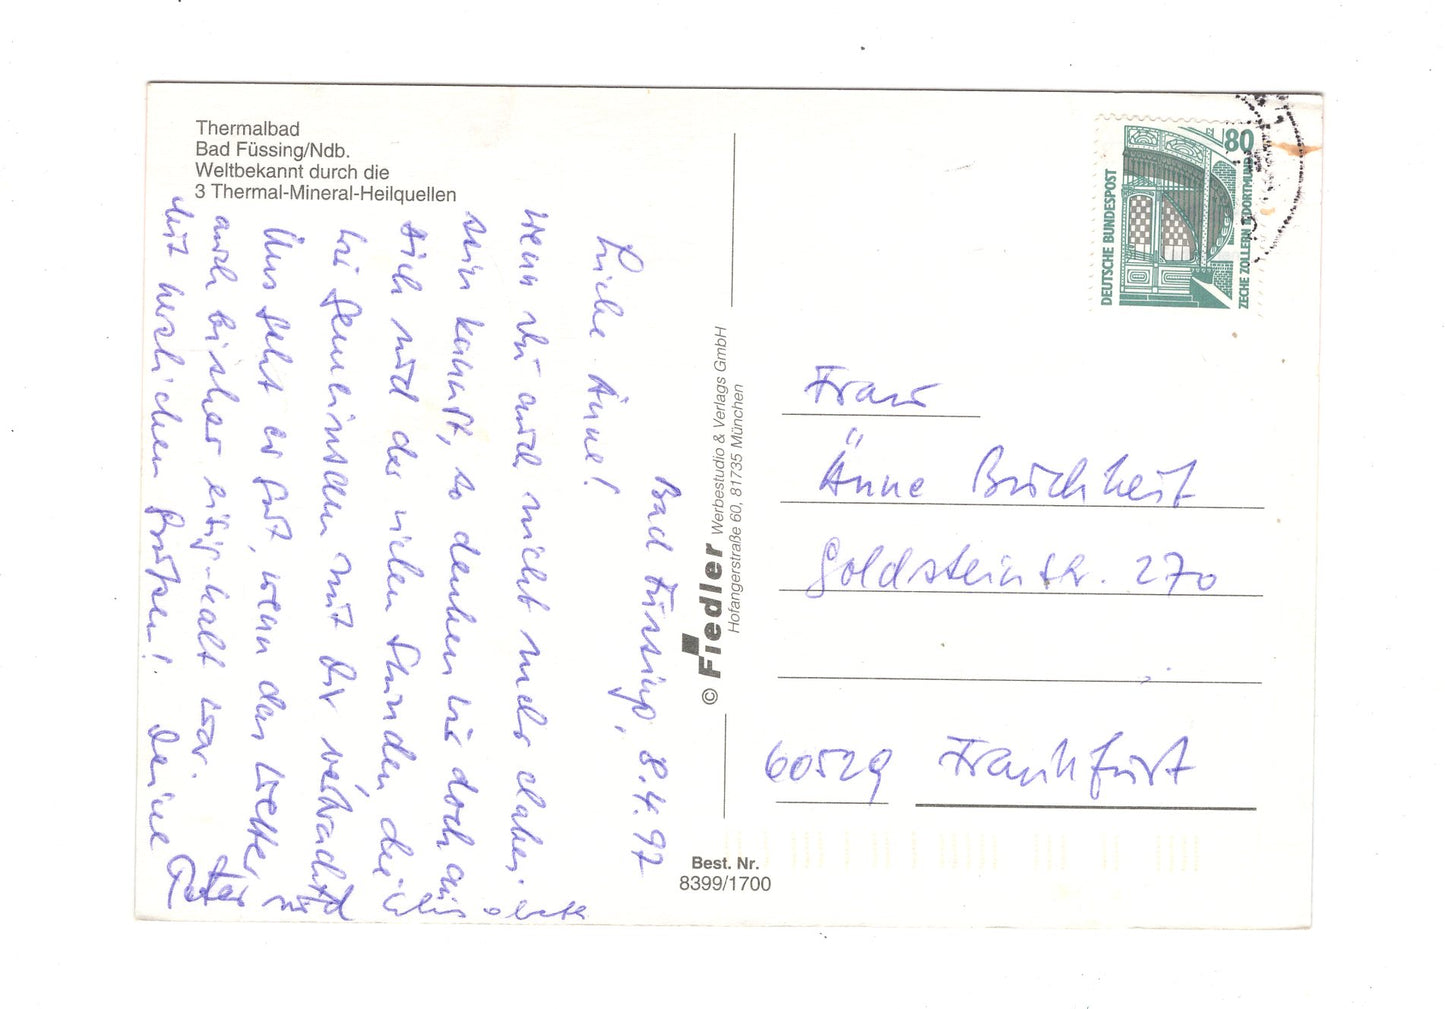 Thermalbad
Bad Füssing/Ndb.
Weltbekannt durch die
3 Thermal-Mineral-Heilquellen
Bad Füssing, 8.4.97
Liebe Änne!
Wenn Du auch nicht mehr dabei
sein kannst, so denken wir doch an
Dich und die vielen Stunden die
wir gemeinsam mit Dir verbracht
Uns geht es gut, wenn das Wetter
auch bisher eisig-kalt war.
Mit herzlichen Grüßen! Deine
© Fiedler Werbestudio & Verlags GmbH
Hofangerstraße 60, 81735 München
Best. Nr.
8399/1700
DEUTSCHE BUNDESPOST
80
ZECHE ZOLLERN II DORTMUND
Frau
Änne Buchheit
Goldsteinstr. 270
60529 Frankfurt